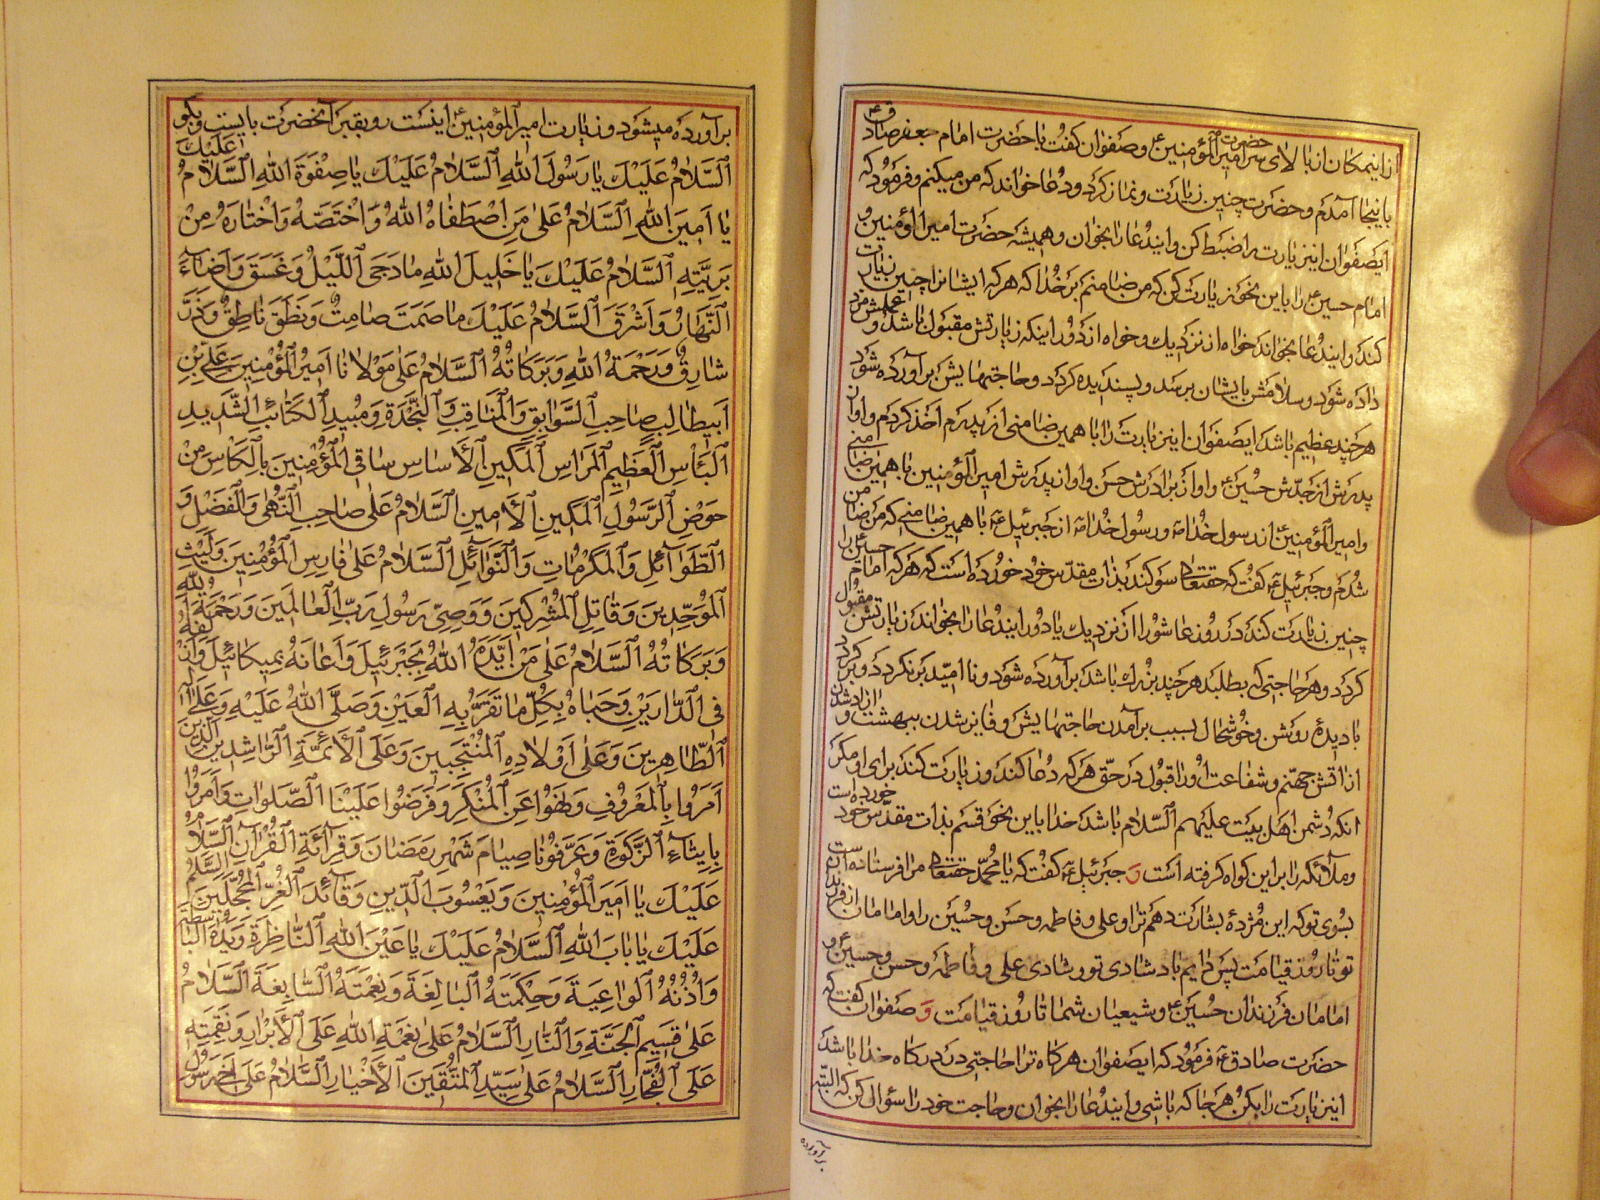 ازاینمکان از بالای سر حضرت امیر المؤمنین ع و صفوان کفت با حضرت امام جعفر صادق ع
باینجا آمدم و حضرت چنین زیارت و نماز کرد و دعا خواند که من میکنم و فرمود که
ایصفوان اینزیارت را ضبط کن و ایندعا را بخوان و همیشه حضرت امیر المؤمنین و
امام حسین ع را باین نحو زیارت کن که من ضامنم بر خدا که هر که ایشانرا چنین زیارت
کند و ایندعا بخواند خواه از نزدیك و خواه از دور اینکه زیارتش مقبول باشد و عملش مزد
داده شود و سلامش بایشان برسد و پسندیده کردد و حاجتهایش برآورده شود
هر چند عظیم باشد ایصفوان اینزیارت را با همین ضامنی از پدرم اخذ کردم و او از
پدرش از جدّش حسین ع و او از برادرش حسن و او از پدرش امیر المؤمنین با همین ضامنی
و امیر المؤمنین ع از رسول خدا ص و رسول خدا ص از جبرئیل ع با همین ضامنی که من ضامن
شدم و جبرئیل ع کفت که حقتعالی سوکند بذات مقدّس خود خورده است که هر که امام حسین را
چنین زیارت کند در روز عاشورا از نزدیك یا دور و ایندعا را بخواند زیارتش مقبول
کردد و هر حاجتی که بطلبد هر چند بزرك باشد برآورده شود و نا امید برنکردد و برکردد
با دیدهٔ روشن و خوشحال بسبب برآمدن حاجتهایش و فایز شدن ببهشت و آزاد شدن
از اتش جهنم و شفاعت او را قبول در حقّ هر که دعا کند و زیارت کند برای او مکر
انکه دشمن اهل بیت علیهم السّلام باشد خدا باین نحو قسم بذات مقدّس خود خورده است
و ملائکه را بر این کواه کرفته است و جبرئیل ع کفت که یا محمد حقتعالی مرا فرستاده است
بسوی تو که این مژدهٔ بشارت دهم ترا و علی و فاطمه و حسن و حسین را و امامان از فرزند
تو تا روز قیامت پس دایم باد شادی تو و شادی علی و فاطمه و حسن و حسین ع و
امامان فرزندان حسین ع و شیعیان شما تا روز قیامت و صفوان کفت که
حضرت صادق ع فرمود که ایصفوان هرکاه ترا حاجتی در درکاه خدا باشد
اینزیارت را بکن هر جا که باشی و ایندعا را بخوان و حاجت خود را سؤال کن که البتّه
برآورده
برآورده میشود و زیارت امیر المؤمنین ع اینست رو بقبر آنحضرت بایست و بکو
اَلسَّلامُ عَلَیْكَ یا رَسُولَ اللهِ اَلسَّلامُ عَلَیْكَ یا صِفْوَةَ اللهِ اَلسَّلامُ عَلَیْكَ
یا اَمینَ اللهِ اَلسَّلامُ عَلی مَنِ اصْطَفاهُ اللهُ وَ اخْتَصَّهُ وَ اخْتارَهُ مِنْ
بَرِیَّتِهِ اَلسَّلامُ عَلَیْكَ یا خَلیلَ اللهِ ما دَجَی اللَّیْلُ وَ غَسَقَ وَ اَضاءَ
النَّهارُ وَ اَشْرَقَ اَلسَّلامُ عَلَیْكَ ما صَمَتَ صامِتٌ وَ نَطَقَ ناطِقٌ وَ ذَرَّ
شارِقٌ وَ رَحْمَةُ اللهِ وَ بَرَکاتُهُ اَلسَّلامُ عَلی مَوْلانا اَمیرِ الْمُؤْمِنینَ عَلِیِّ بْنِ
اَبیطالِبٍ صاحِبِ السَّوابِقِ وَ الْمَناقِبِ وَ النَّجْدَةِ وَ مُبیدِ الْکَتائِبِ الشَّدیدِ
الْبَأْسِ الْعَظیمِ الْمِراسِ الْمَکینِ الْاَساسِ ساقِی الْمُؤْمِنینَ بِالْکَأْسِ مِنْ
حَوْضِ الرَّسُولِ الْمَکینِ الْاَمینِ اَلسَّلامُ عَلی صاحِبِ النُّهی وَ الْفَضْلِ وَ
الطَّوائِلِ وَ الْمَکْرُماتِ وَ النَّوائِلِ اَلسَّلامُ عَلی فارِسِ الْمُؤْمِنینَ وَ لَیْثِ
الْمُوَحِّدینَ وَ قاتِلِ الْمُشْرِکینَ وَ وَصِیِّ رَسُولِ رَبِّ الْعالَمینَ وَ رَحْمَةُ اللهِ
وَ بَرَکاتُهُ اَلسَّلامُ عَلی مَنْ اَیَّدَهُ اللهُ بِجَبْرَئیلَ وَ اَعانَهُ بِمیکائیلَ وَ اَزْلَفَهُ
فِی الدّارَیْنِ وَ حَباهُ بِکُلِّ ما تَقَرُّ بِهِ الْعَیْنُ وَ صَلَّی اللهُ عَلَیْهِ وَ عَلی آلِهِ
الطّاهِرینَ وَ عَلی اَوْلادِهِ الْمُنْتَجَبینَ وَ عَلَی الْاَئِمَّةِ الرّاشِدینَ الَّذینَ
اَمَرُوا بِالْمَعْرُوفِ وَ نَهَوْا عَنِ الْمُنْکَرِ وَ فَرَضُوا عَلَیْنَا الصَّلَواتِ وَ اَمَرُوا
بِایتاءِ الزَّکوةِ وَ عَرَّفُونا صِیامَ شَهْرِ رَمَضانَ وَ قِرائَةَ الْقُرْآنِ اَلسَّلامُ
عَلَیْكَ یا اَمیرَ الْمُؤْمِنینَ وَ یَعْسُوبَ الدّینِ وَ قائِدَ الْغُرِّ الْمُحَجَّلینَ اَلسَّلامُ
عَلَیْكَ یا بابَ اللهِ اَلسَّلامُ عَلَیْكَ یا عَیْنَ اللهِ النّاظِرَةَ وَ یَدَهُ الْباسِطَةَ
وَ اُذُنَهُ الْواعِیَةَ وَ حِکْمَتَهُ الْبالِغَةَ وَ نِعْمَتَهُ السّابِغَةَ اَلسَّلامُ
عَلی قَسیمِ الْجَنَّةِ وَ النّارِ اَلسَّلامُ عَلی نِعْمَةِ اللهِ عَلَی الْاَبْرارِ وَ نِقْمَتِهِ
عَلَی الْفُجّارِ اَلسَّلامُ عَلی سَیِّدِ الْمُتَّقینَ الْاَخْیارِ اَلسَّلامُ عَلی اَخی رَسُولِ